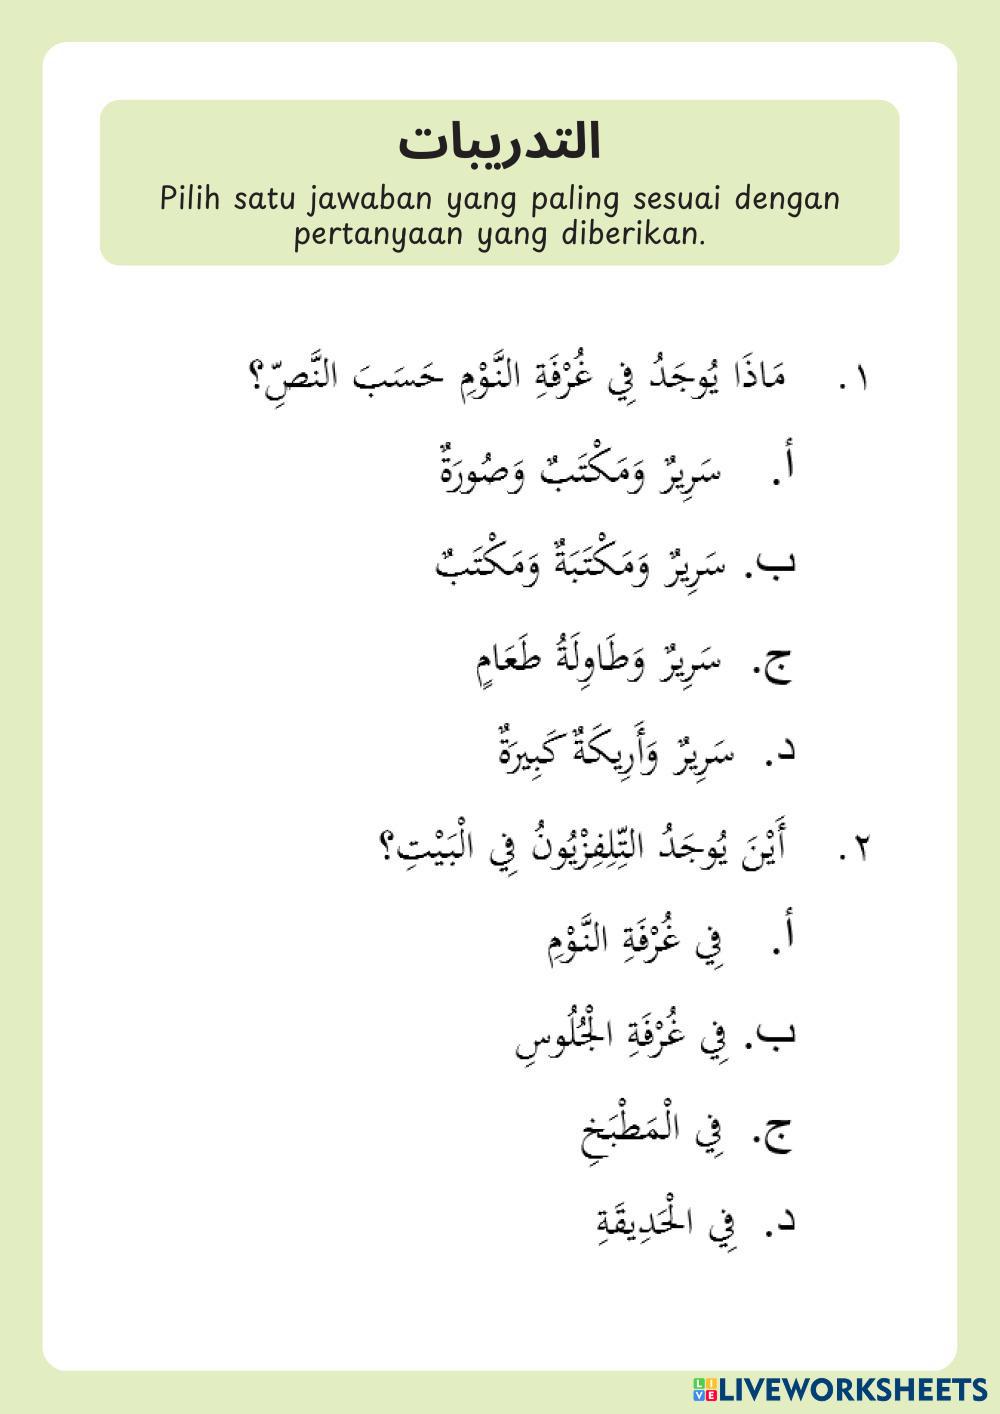 التدريبات
Pilih satu jawaban yang paling sesuai dengan
pertanyaan yang diberikan.
١. مَاذَا يُوجَدُ فِي غُرْفَةِ النَّوْمِ حَسَبَ النَّصِّ؟
أ. سَرِيرٌ وَمَكْتَبٌ وَصُورَةٌ
ب. سَرِيرٌ وَمَكْتَبَةٌ وَمَكْتَبٌ
ج. سَرِيرٌ وَطَاوِلَةُ طَعَامٍ
د. سَرِيرٌ وَأَرِيكَةٌ كَبِيرَةٌ
٢. أَيْنَ يُوجَدُ التِّلِفِزْيُونُ فِي الْبَيْتِ؟
أ. فِي غُرْفَةِ النَّوْمِ
ب. فِي غُرْفَةِ الْجُلُوسِ
ج. فِي الْمَطْبَخِ
د. فِي الْحَدِيقَةِ
LIVE LIVEWORKSHEETS